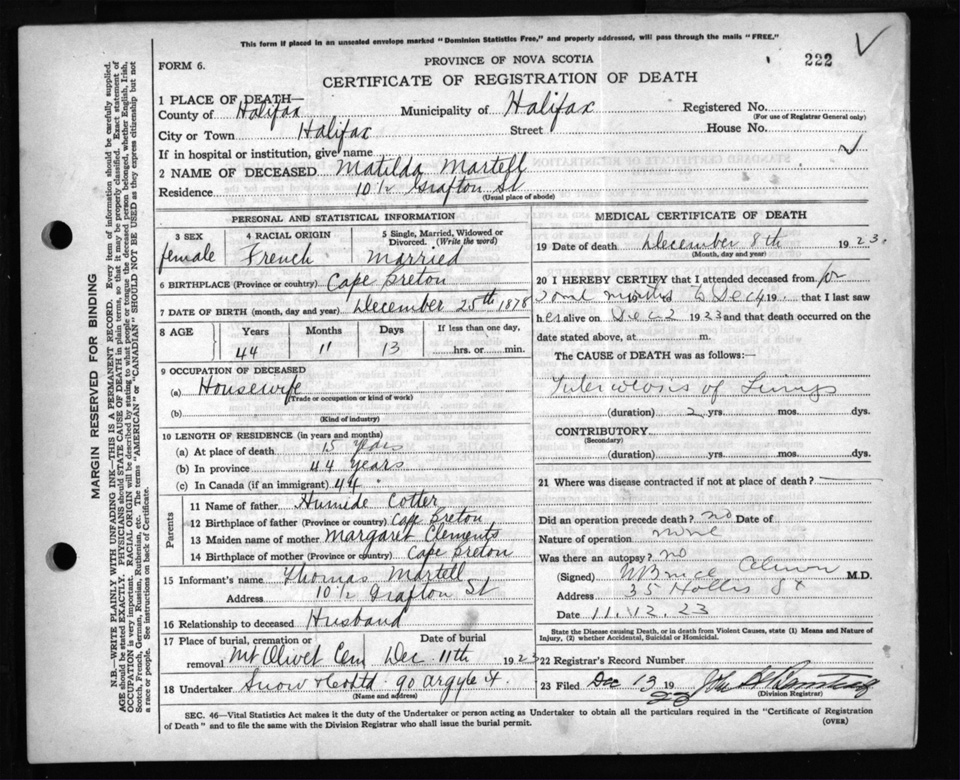 This form if placed in an unsealed envelope marked "Dominion Statistics Free," and properly addressed, will pass through the mails "FREE."
FORM 6.
PROVINCE OF NOVA SCOTIA
222
CERTIFICATE OF REGISTRATION OF DEATH
1 PLACE OF DEATH—
County of Halifax Municipality of Halifax Registered No.
(For use of Registrar General only)
City or Town Halifax Street House No.
If in hospital or institution, give name
2 NAME OF DECEASED Matilda Martell
Residence 10½ Grafton St
(Usual place of abode)
PERSONAL AND STATISTICAL INFORMATION
3 SEX 4 RACIAL ORIGIN 5 Single, Married, Widowed or Divorced. (Write the word)
female French Married
6 BIRTHPLACE (Province or country) Cape Breton
7 DATE OF BIRTH (month, day and year) December 25th 1878
8 AGE Years Months Days If less than one day,
44 11 13 hrs. or min.
9 OCCUPATION OF DECEASED
(a) Housewife
(Trade or occupation or kind of work)
(b)
(Kind of industry)
10 LENGTH OF RESIDENCE (in years and months)
(a) At place of death 15 years
(b) In province 44 years
(c) In Canada (if an immigrant) 44
Parents
11 Name of father Cotter
12 Birthplace of father (Province or country) Cape Breton
13 Maiden name of mother Margaret Clements
14 Birthplace of mother (Province or country) Cape Breton
15 Informant's name Thomas Martell
Address 10½ Grafton St
16 Relationship to deceased Husband
17 Place of burial, cremation or removal Mt Olivet Cem Date of burial Dec 11th 1923
18 Undertaker Snow 90 Argyle St
(Name and address)
MEDICAL CERTIFICATE OF DEATH
19 Date of death December 8th 1923.
(Month, day and year)
20 I HEREBY CERTIFY that I attended deceased from for
some months to Dec 19 that I last saw
her alive on Dec 2 1923 and that death occurred on the
date stated above, at m.
The CAUSE of DEATH was as follows:—
Tuberculosis of Lungs
(duration) 2 yrs. mos. dys.
CONTRIBUTORY
(Secondary)
(duration) yrs. mos. dys.
21 Where was disease contracted if not at place of death?
Did an operation precede death? no Date of
Nature of operation none
Was there an autopsy? no
(Signed) M.D.
Address 35 Hollis St
Date 11.12.23
State the Disease causing Death, or in death from Violent Causes, state (1) Means and Nature of Injury, (2) whether Accidental, Suicidal or Homicidal.
22 Registrar's Record Number
23 Filed Dec 13 1923 John
(Division Registrar)
SEC. 46—Vital Statistics Act makes it the duty of the Undertaker or person acting as Undertaker to obtain all the particulars required in the "Certificate of Registration
of Death" and to file the same with the Division Registrar who shall issue the burial permit.
(OVER)
MARGIN RESERVED FOR BINDING
N.B.—WRITE PLAINLY WITH UNFADING INK—THIS IS A PERMANENT RECORD. Every item of information should be carefully supplied.
AGE should be stated EXACTLY. PHYSICIANS should STATE CAUSE OF DEATH in plain terms, so that it may be properly classified. Exact statement of
OCCUPATION is very important. RACIAL ORIGIN will be described by stating to what people or tongue the deceased person belonged, whether English, Irish,
Scotch, French, German, Russian, Ruthenian, etc. The terms "AMERICAN" or "CANADIAN" SHOULD NOT BE USED as they express citizenship but not
a race or people. See instructions on back of Certificate.